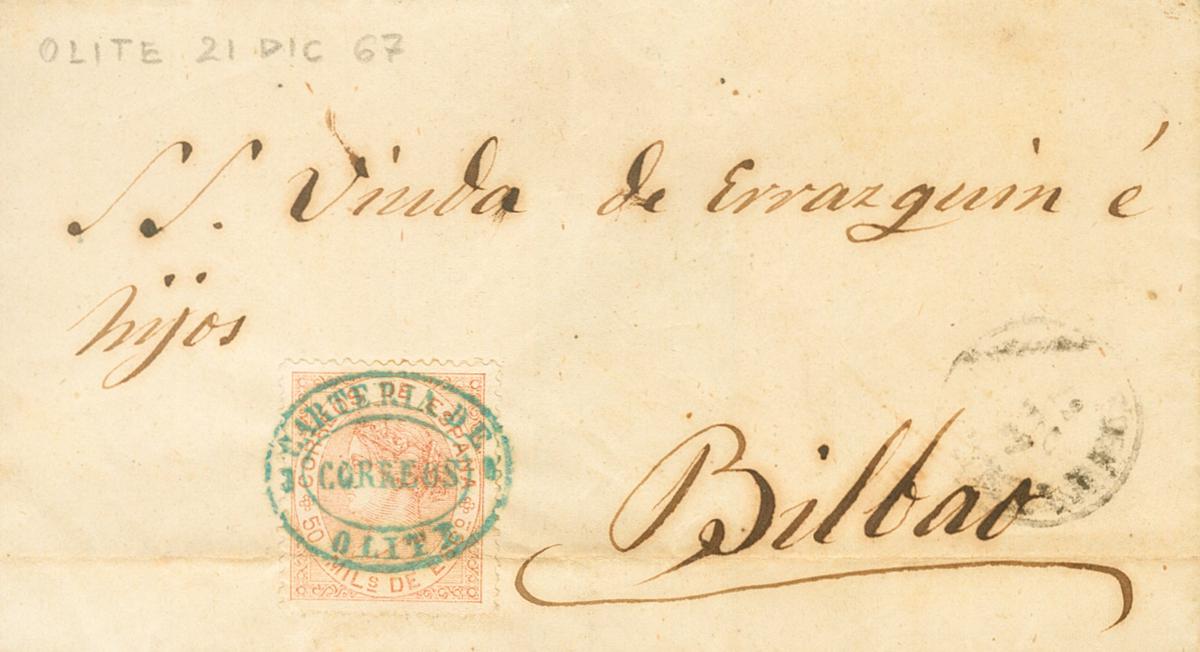 OLITE 21 DIC 67
S S. Viuda de Errazquin é
hijos
CARTERIA DE
CORREOS
OLITE
CORREOS DE ESPAÑA
50 MILS DE Eo
Bilbao